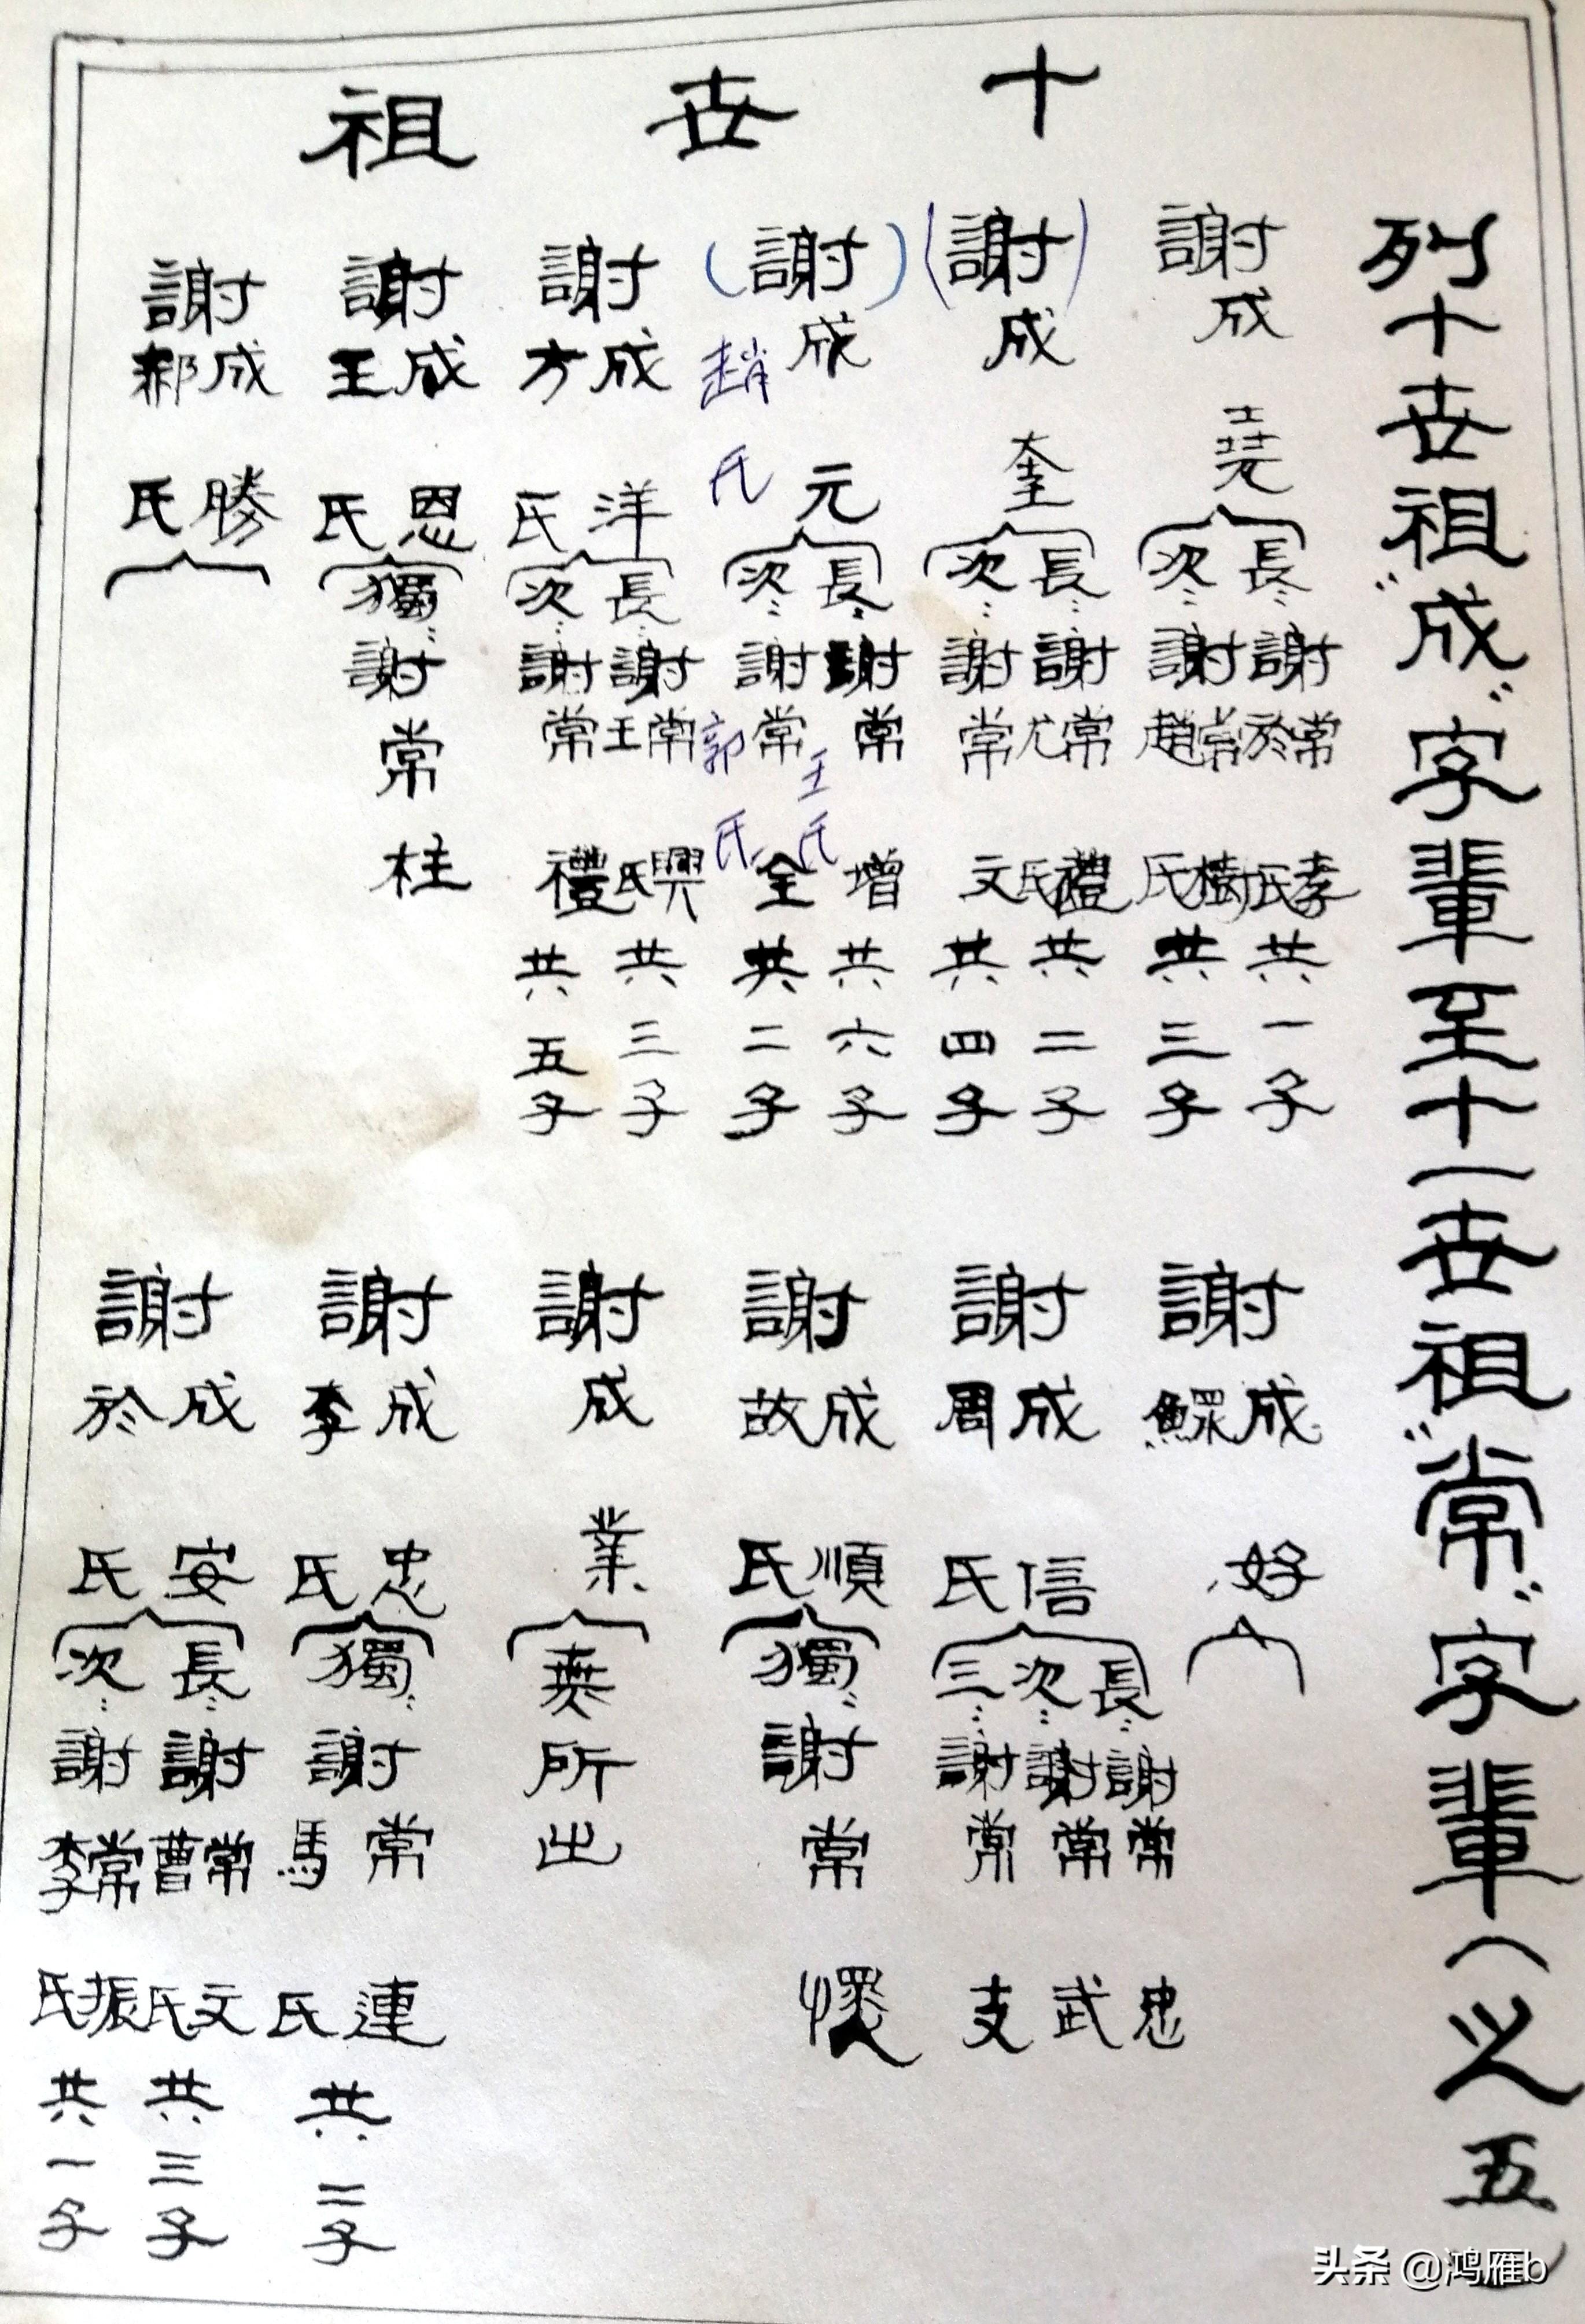 十世祖
列十世祖“成”字輩至十一世祖“常”字輩（之五）
謝成堯
長：謝常孝 於氏 共一子
次：謝常樹 趙氏 共三子
（謝）成奎
長：謝常禮 尤氏 共二子
次：謝常文 共四子
（謝）成元 趙氏
長：謝常增 王氏 共六子
次：謝常全 郭氏 共二子
謝成洋 方氏
長：謝常興 王氏 共三子
次：謝常禮 共五子
謝成恩 王氏
獨：謝常柱
謝成勝 郝氏
謝成好 鰥
謝成信 周氏
長：謝常忠
次：謝常武
三：謝常支
謝成順 故氏
獨：謝常懷
謝成業
無所出
謝成忠 李氏
獨：謝常連 馬氏 共二子
謝成安 於氏
長：謝常文 曹氏 共三子
次：謝常振 李氏 共一子
头条 @鸿雁b